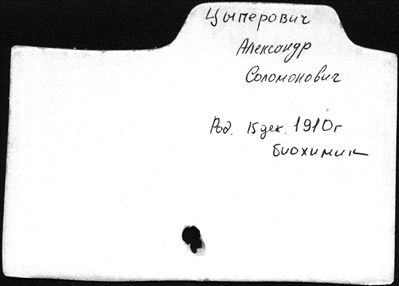 Цыперович
Александр
Соломонович
Род. 15 дек. 1910 г
биохимик